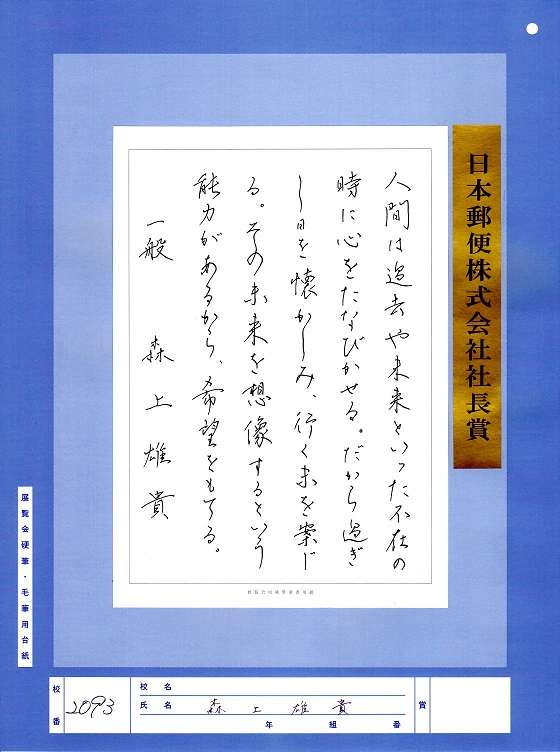 日本郵便株式会社社長賞
人間は過去や未来といった不在の
時に心をたなびかせる。だから過ぎ
し日を懐かしみ、行く末を案じ
る。その未来を想像するという
能力があるから、希望をもてる。
一般 森上雄貴
展覧会硬筆・毛筆用台紙
校番 2093
校名
氏名 森上雄貴
年 組 番
賞